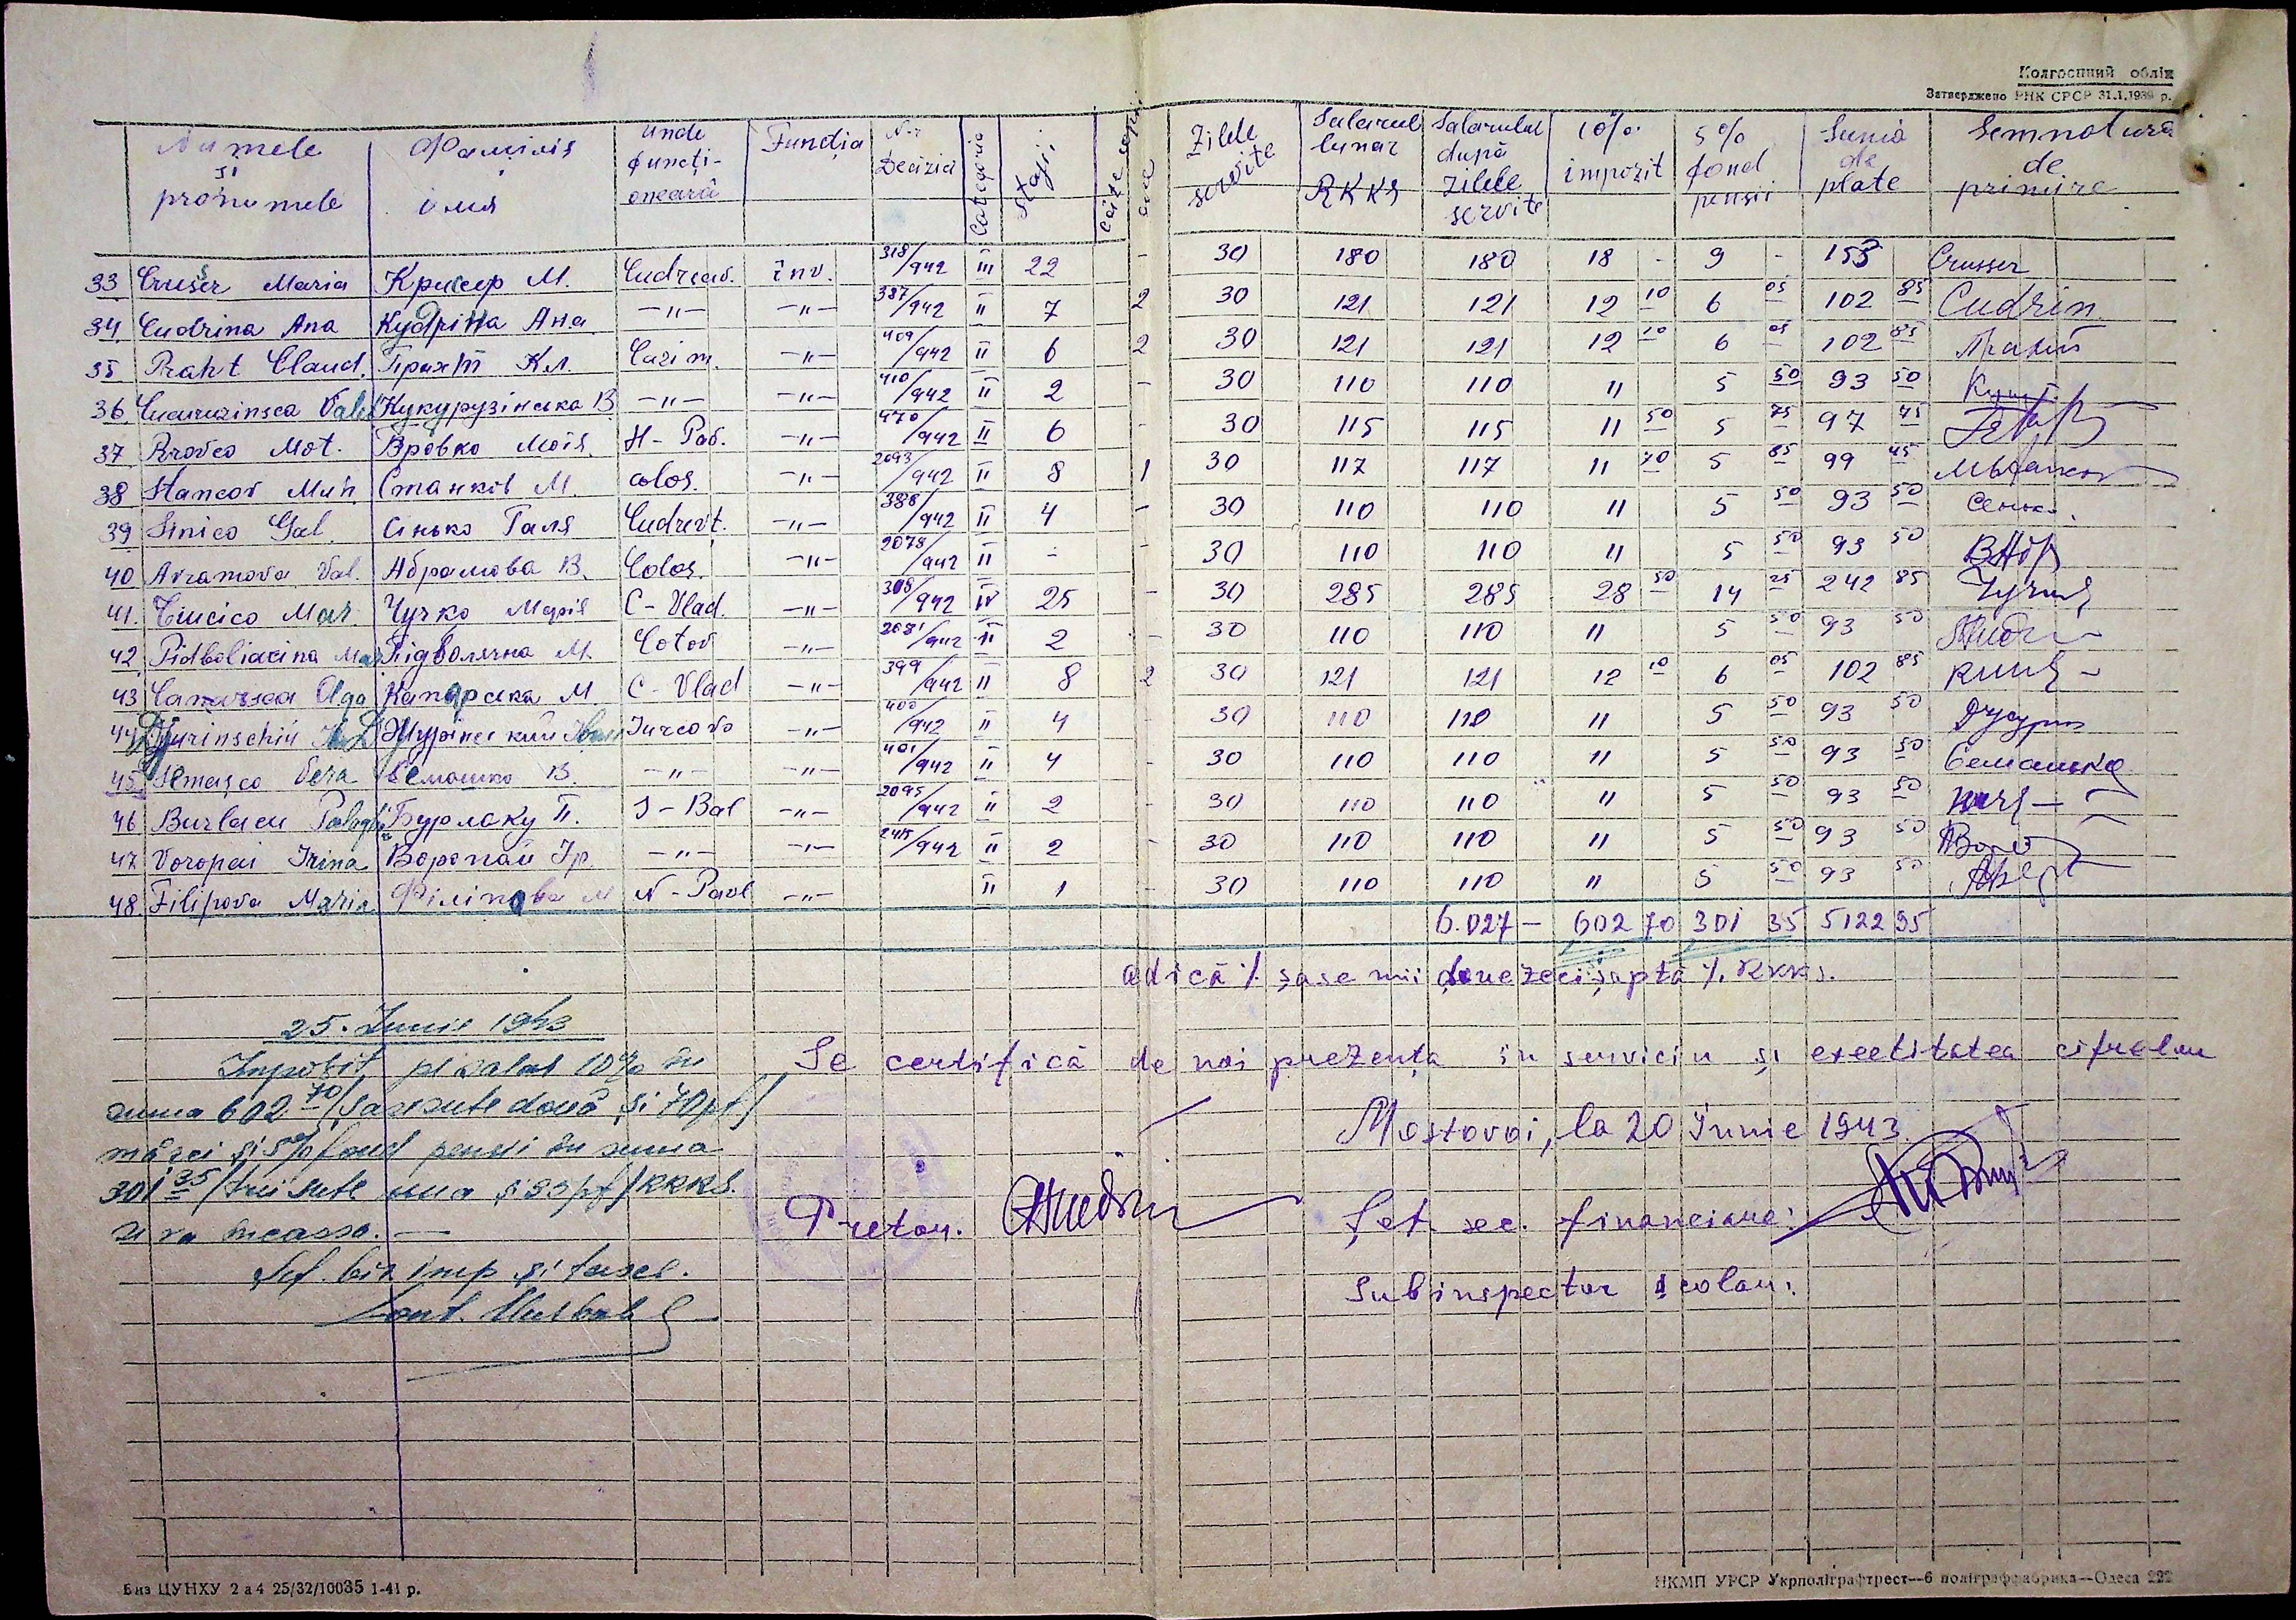 Колгоспний облік
Затверджено РНК СРСР 31.I.1939 р.
Numele și pronumele Фамілія імя Unde funcți-onează Funcția N-r Decizid Categoria Stagii Câțe copii are Zilele servite Salarul lunar RKKS Salarului după zilele servite 10% impozit 5% fond pensii Suma de plate Semnatura de primire
33 Crușer Maria Крисер М. Cudreav. înv. 318/942 III 22 - 30 180 180 18 - 9 - 153 Crusser
34 Cudrina Ana Кудріна Ана -"- -"- 387/942 II 7 2 30 121 121 12 10 6 05 102 85 Cudrin
35 Praht Claud. Прахт Кл. Carim. -"- 409/942 II 6 2 30 121 121 12 10 6 05 102 85
36 Cucuruzinsca Vale Кукурузінська В -"- -"- 410/942 II 2 - 30 110 110 11 5 50 93 50
37 Brovco Mot. Бровко Мотя. N-Pav. -"- 470/942 II 6 - 30 115 115 11 50 5 75 97 45
38 Stancov Mih Станків М. colos. -"- 2093/942 II 8 1 30 117 117 11 70 5 85 99 45
39 Sinico Gal. Сінько Галя Cudrevț. -"- 388/942 II 4 - 30 110 110 11 5 50 93 50
40 Avramova Val. Абрамова В. Colos. -"- 2078/942 II - - 30 110 110 11 5 50 93 50
41. Ciucico Mar. Чучко Марія C-Vlad. -"- 308/942 IV 25 - 30 285 285 28 50 14 25 242 85
42 Pidboliacina Mar Підболячна М. Cotov -"- 2081/942 II 2 - 30 110 110 11 5 50 93 50
43 Canarsca Olga Канарська М. C-Vlad -"- 399/942 II 8 2 30 121 121 12 10 6 05 102 85
44 Djurinschii Журінський Iurcovo -"- 400/942 II 4 - 30 110 110 11 5 50 93 50
45 Semașco Vera Семашко В. -"- -"- 401/942 II 4 - 30 110 110 11 5 50 93 50 Семашко
46 Burlacu Бурлаку П. I-Bal -"- 2095/942 II 2 - 30 110 110 11 5 50 93 50
47 Voropai Irina Воропай Ір. -"- -"- 2415/942 II 2 - 30 110 110 11 5 50 93 50
48 Filipova Maria Філіпова М N-Pavl -"- II 1 - 30 110 110 11 5 50 93 50
6.027 - 602 70 301 35 5122 95
adică /. șase mii douezeci șaptă /. RKKS.
25. Iunie 1943
Impozit pe salar 10% în
suma 602 70 /șasesute două și 70 pf/
mărci și 5% fond pensii în suma
301 35 /trei sute una și 35 pf/ RKKS.
se va încassa. —
Șef. bir. imp. și taxe.
Se certifică de noi prezența in serviciu și exectitatea cifrelor
Mostovoi, la 20 Iunie 1943.
Pretor.
Șef. sec. financiară:
Subinspector școlar:
Биз ЦУНХУ 2 а 4 25/32/10035 1-41 р.
НКМП УРСР Укрполіграфтрест—6 поліграффабрика—Одеса 222